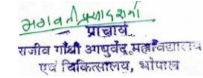 भगवतीप्रसाद शर्मा
प्राचार्य
राजीव गाँधी आयुर्वेद महाविद्यालय
एवं चिकित्सालय, भोपाल